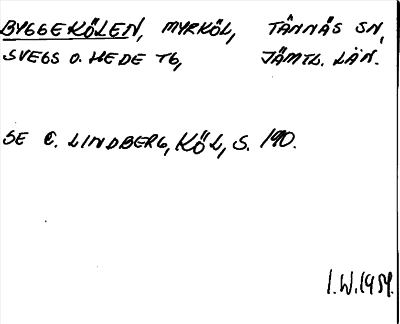 BYGGEKÖLEN, MYRKÖL, TÄNNÄS SN,
SVEGS O. HEDE TG, JÄMTL. LÄN.
SE C. LINDBERG, KÖL, S. 190.
I.W.1959.